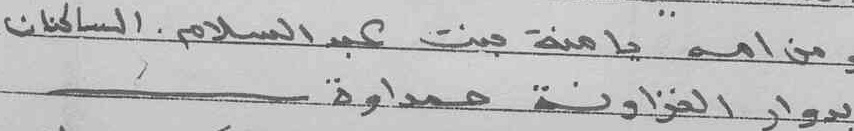 ومن امه " يامنة بنت عبد السلام. الساكنان
بدوار الغزاونة حمداوة